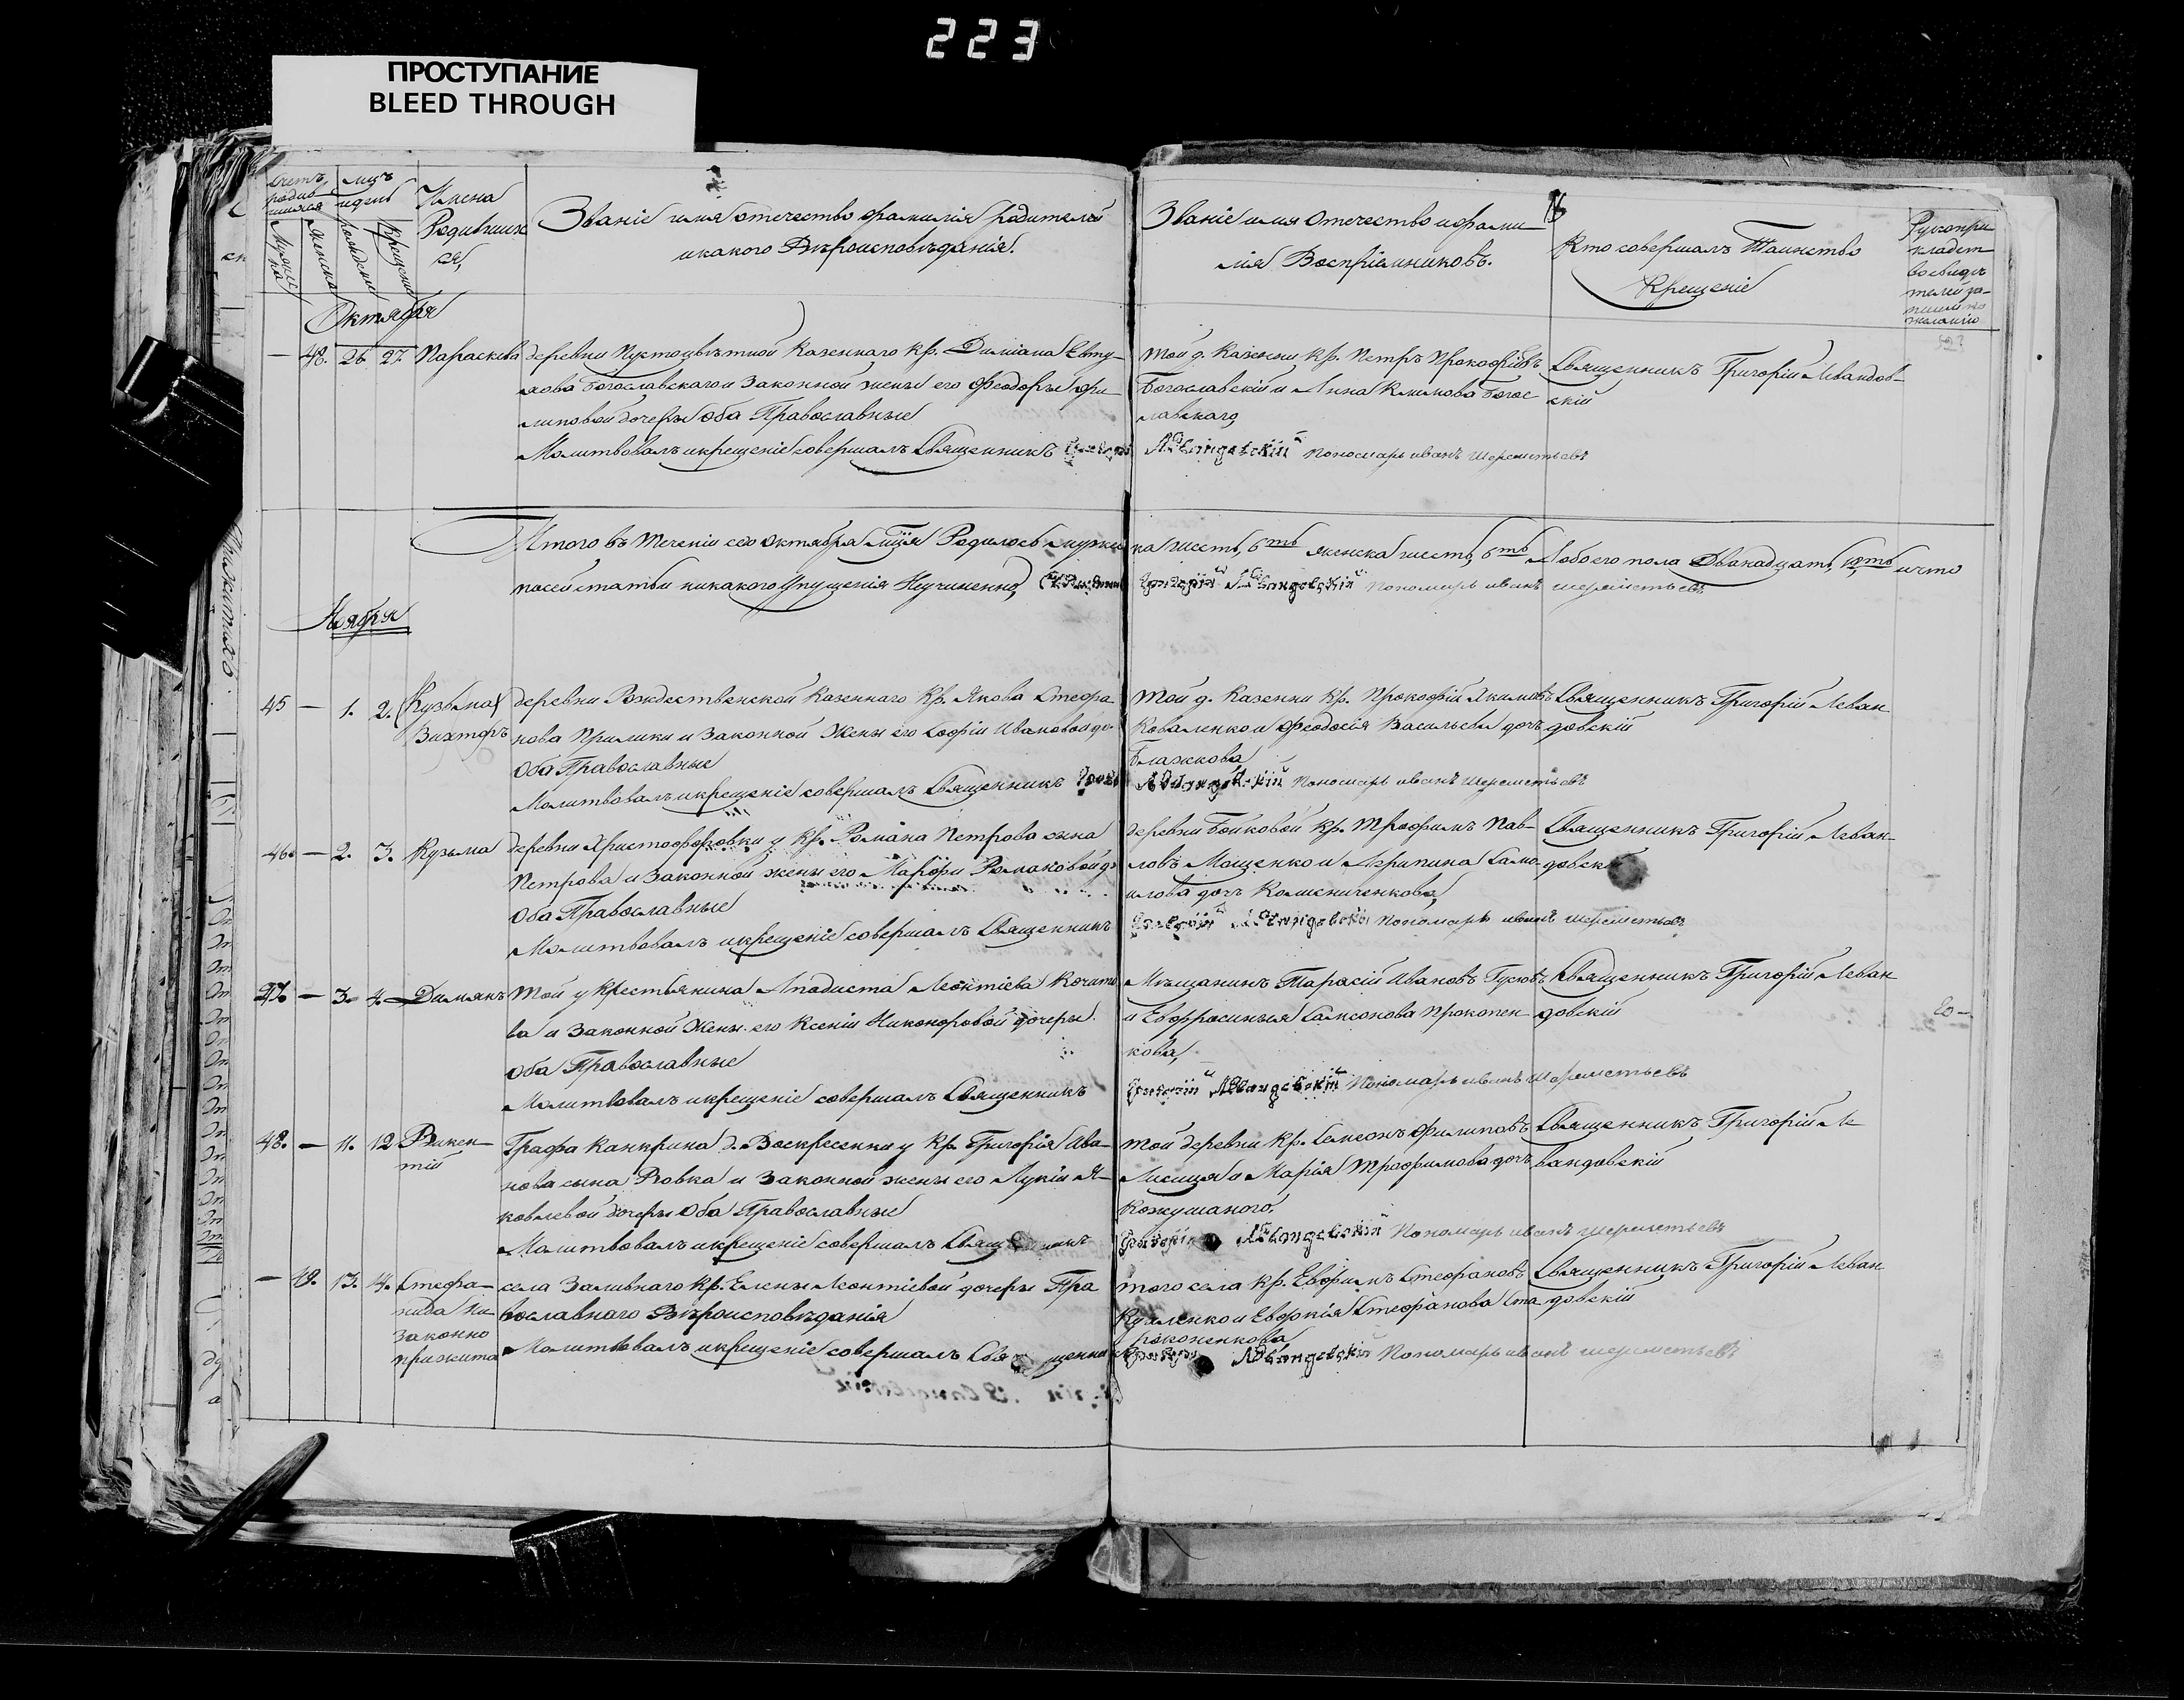 223
ПРОСТУПАНИЕ
BLEED THROUGH
Счетъ родившихся
Мужска
Женска
мцъ и день
рожденіе
крещеніе
Имена Родившихся,
Званіе имя отечество фамилія родителей
и какого Вѣроисповѣданія.
Званіе имя Отечество и фами-
лія Воспріемниковъ.
Кто совершалъ Таинство
Крещеніе
Рукопри
кладст
во свидѣ
телей за-
писи по
желанію
Октября
— 48. 26. 27. Параскева
деревни Пустоцвѣтной Казеннаго кр. Диміана Евту-
хова Богославскаго и Законной жены его Феодоры Фи-
липовой дочеры Оба Православные
Молитвовалъ и крещеніе совершалъ Священникъ Григорій
той д. Казенни кр. Петръ Прокофіевъ
Богославскій и Анна Климова Богос-
лавскаго,
Левандовскій Пономарь иванъ Шереметьевъ
Священникъ Григорій Левандов-
скій
Итого въ теченіи сего Октября мця Родилось мужска шесть, 6ть женска шесть, 6ть А обоего пола Двѣнадцать, 12ть и что
по сей статьи никакого Упущенія Неучиненно, Священникъ Григорій Левандовскій Пономарь иванъ шереметьевъ
Ноября
45 — 1. 2. (Кузьма)
Викторъ
деревни Рождественской Казеннаго Кр. Якова Стефа-
нова Прилики и Законной Жены его Софіи Ивановой до.
Оба Православные
Молитвовалъ и крещеніе совершалъ Священникъ Григорій
той д. Казенни кр. Прокофій Якимовъ
Коваленко и Феодосія Васильева дочъ
Блажкова
Левандовскій Пономарь иванъ Шереметьевъ
Священникъ Григорій Леван
довскій
46. — 2. 3. Кузьма
деревни Христофоровки у Кр. Романа Петрова сына
Петрова и Законной жены его Марфи Романовой до
Оба Православные
Молитвовалъ и крещеніе совершалъ Священникъ
деревни Бойковой Кр. Трофимъ Пав-
ловъ Мощенко и Агрипина Само-
илова дочъ Колисниченкова,
Григорій Левандовскій Пономарь иванъ шереметьевъ
Священникъ Григорій Леван-
довскій
47. — 3. 4. Димянъ
Той у Крестьянина Леонтіева
ва и Законной Жены его Ксеніи Никоноровой дочеры.
Оба Православные
Молитвовалъ и крещеніе совершалъ Священникъ
Мѣщанинъ Тарасій Ивановъ Гусковъ
и Евфросинья Самсонова Прокопен-
кова,
Григорій Левандовскій Пономарь иванъ шереметьевъ
Священникъ Григорій Леван
довскій
48. — 11. 12 Викен-
тій
Графа Канкрина д. Воскресенки у Кр. Григорія Ива-
нова сына Ровка и Законной жены его Лукіи Я-
ковлевой дочеры Оба Православные
Молитвовалъ и крещеніе совершалъ Священникъ
той деревни Кр. Самсонъ Филиповъ
Лисица и Марія Трофимова дочъ
Кожушаного.
Григорій Левандовскій Пономарь иванъ шереметьевъ
Священникъ Григорій Ле
вандовскій
— 49. 13. 14. Стефа-
нида Не
законно
прижита
села Заливнаго Кр. Елены Леонтіевой дочеры Пра
вославнаго Вѣроисповѣданія
Молитвовалъ и крещеніе совершалъ Священникъ
того села Кр. Евфимъ Стефановъ
и Евфимія Стефанова
Григорій Левандовскій Пономарь иванъ шереметьевъ
Священникъ Григорій Леван
довскій